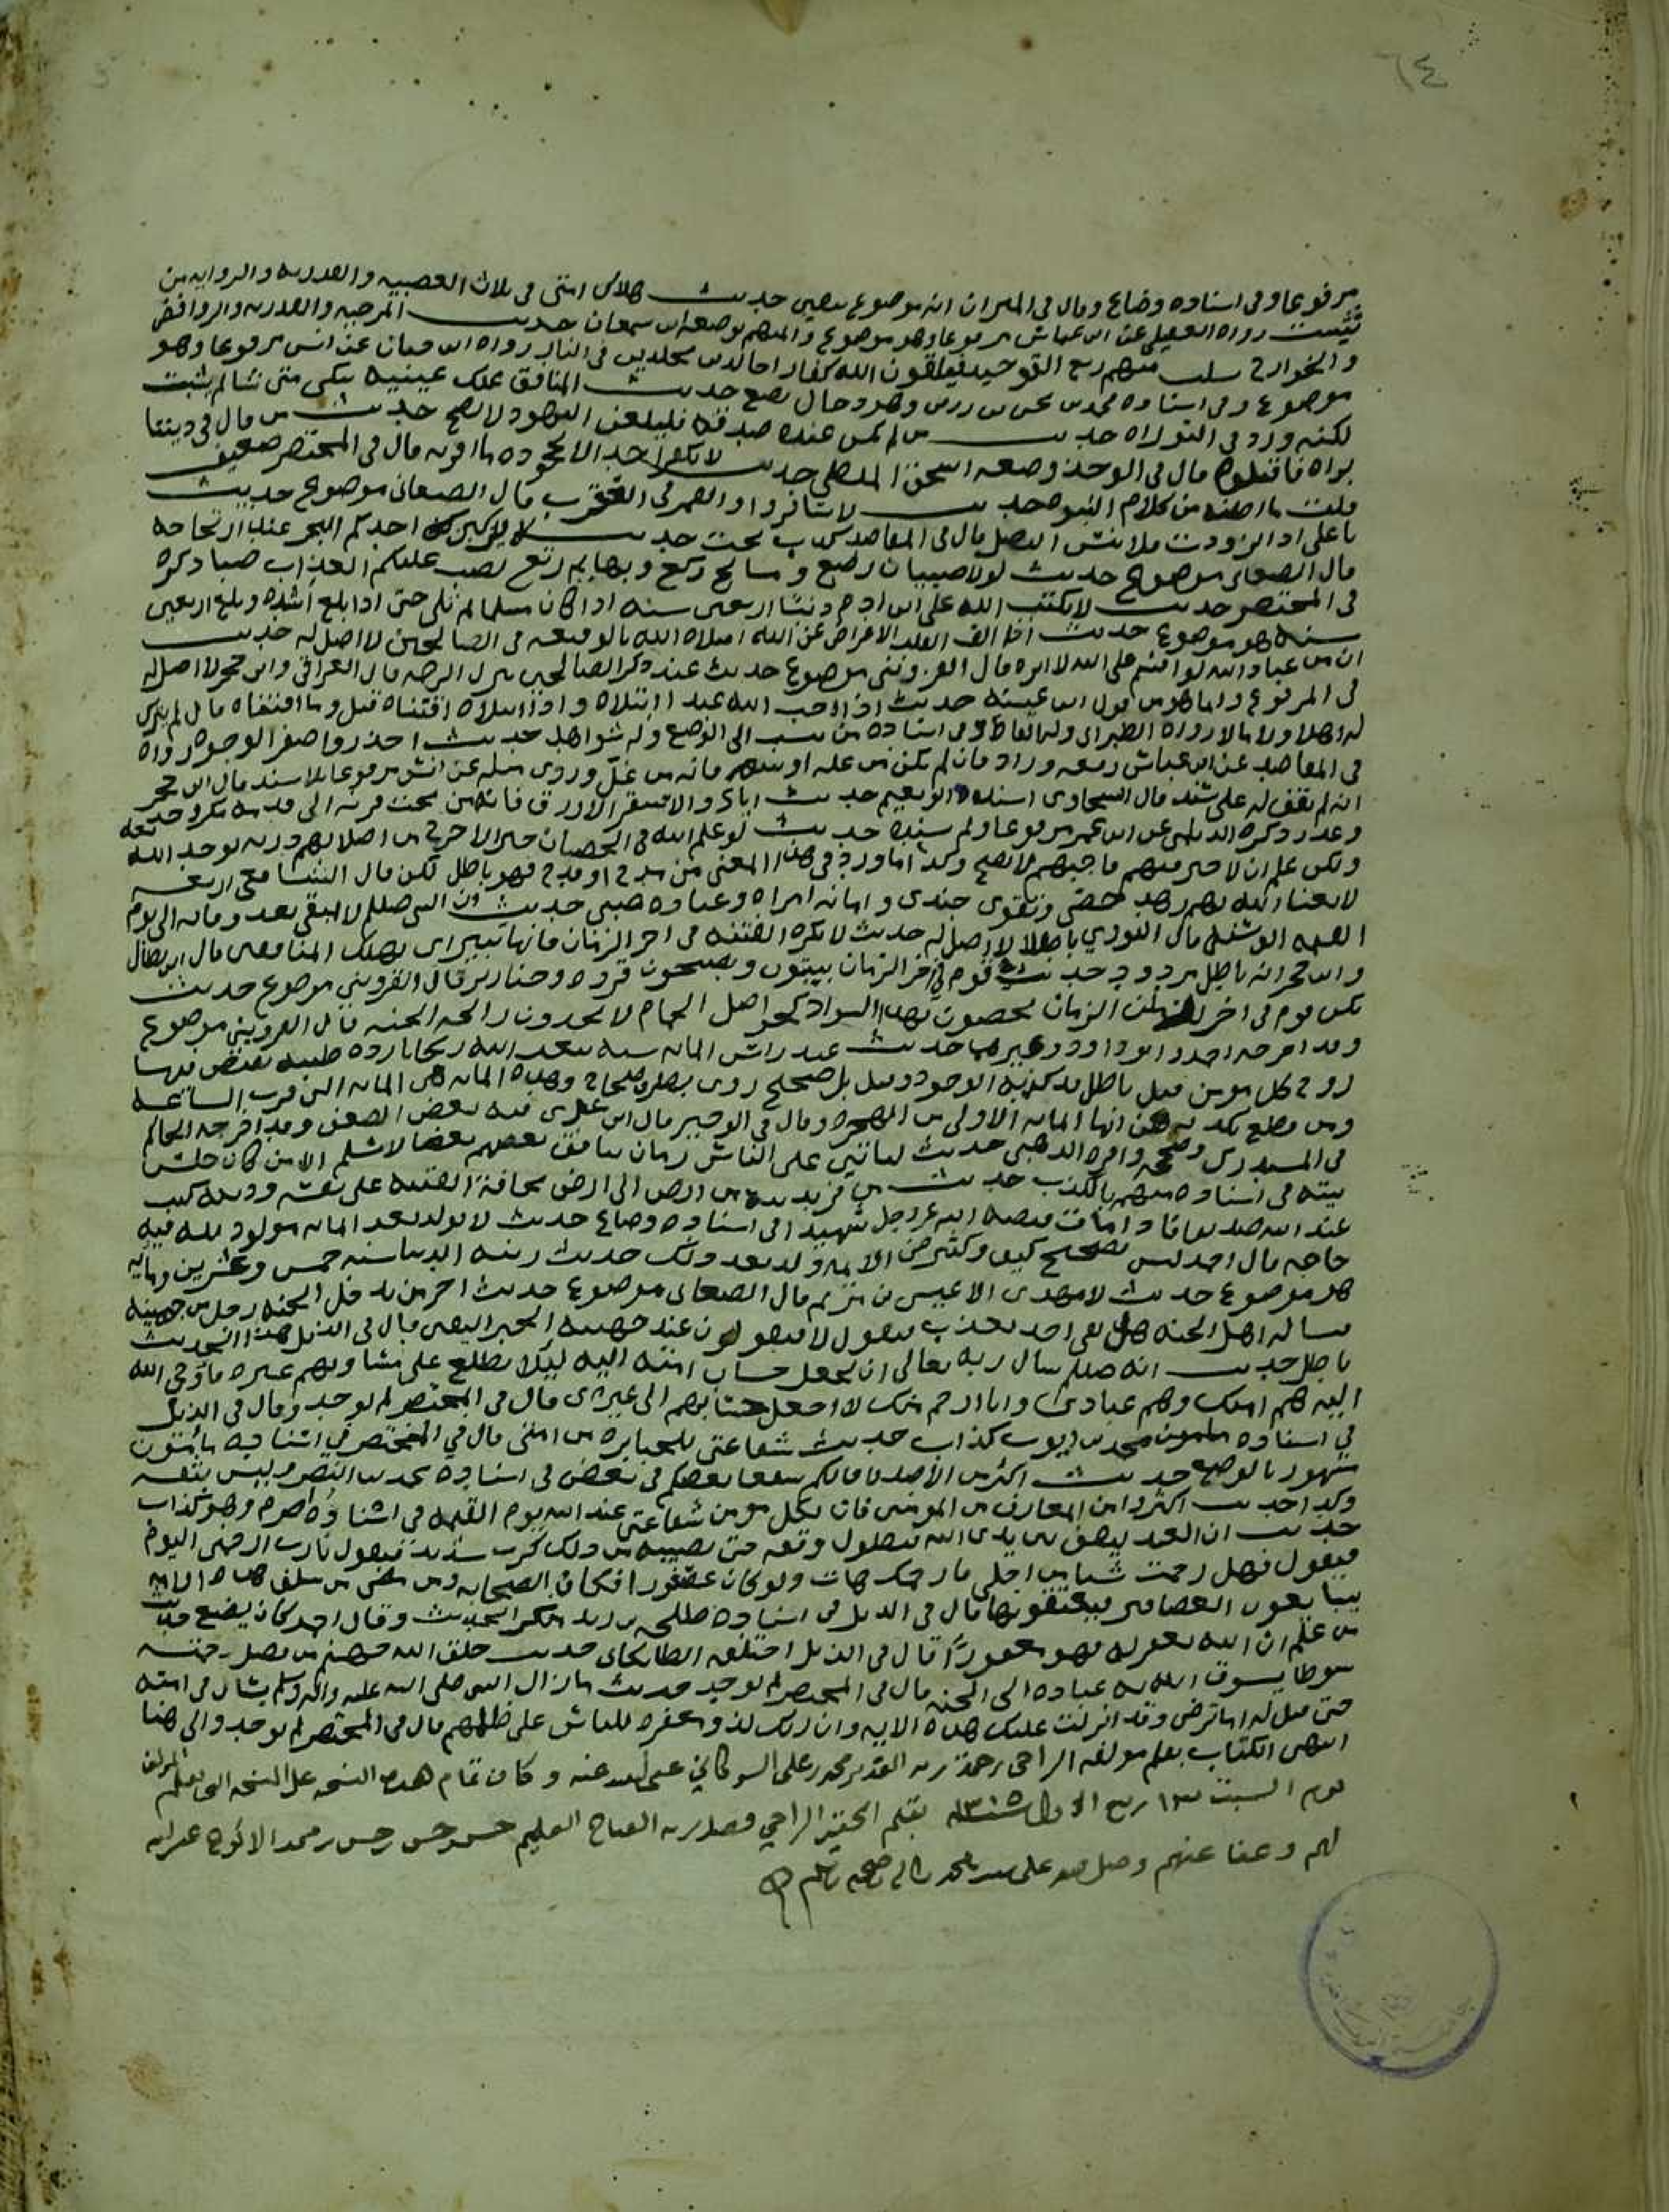 ٦٤
مرفوعا وفى اسناده وضاع وقال فى الميزان انه موضوع بيقين حديث هلاك امتى فى ثلاث العصبيه والقدريه والروايه من
ثبت رواه العقيلى عن ابن عباس مرفوعا وهو موضوع والمتهم بوضعه ابن سمعان حديث المرجيه والقدريه والروافض
والخوارج يسلب منهم ربع التوحيد فيلقون الله كفارا خالدين مخلدين فى النار رواه ابن حبان عن انس مرفوعا وهو
موضوع وفى اسناده محمد بن يحيى بن رزين وهو دجال يضع حديث المنافق يملك عينيه يبكى متى شا لم يثبت
لكنه ورد فى التوراه حديث من لم يكن عنده صدقه فليلعن اليهود لا يصح حديث من قال فى ديننا
براه فاقتلوه قال فى الوجيز وضعه اسحق الملطى حديث لا يكفر احد الا بجحوده بما اقر به قال فى المختصر ضعيف
قلت ما اصله من كلام النبوه حديث لا تسافروا والقمر فى العقرب قال الصغانى موضوع حديث
يا على اذا تزودت فلا تنس البصل قال فى المقاصد كذب بحت حديث لا يركبن احدكم البحر عند ارتجاجه
قال الصغانى موضوع حديث لولا صبيان رضع ومشايخ ركع وبهايم رتع لصب عليكم العذاب صبا ذكره
فى المختصر حديث لا يكتب الله على ابن ادم ذنبا اربعين سنه اذا كان مسلما ثم تلى حتى اذا بلغ اشده وبلغ اربعين
سنه هو موضوع حديث اذا الف القلب الاعراض عن الله ابتلاه الله بالوقيعه فى الصالحين لا اصل له حديث
ان من عباد الله لو اقسم على الله لابره قال القزوينى موضوع حديث عند ذكر الصالحين تنزل الرحمه قال العراقى وابن حجر لا اصل له
فى المرفوع وانما هو من قول ابن عيينه حديث اذا احب الله عبدا ابتلاه واذا ابتلاه اقتناه قيل وما اقتناه قال لم يترك
له اهلا ولا مالا رواه الطبرانى وله الفاظ وفى اسناده من نسب الى الوضع وله شواهد حديث احذروا صفر الوجوه رواه
فى المقاصد عن ابن عباس رفعه وزاد فان لم يكن من عله او سهر فانه من غل وروى مثله عن انس مرفوعا بلا سند قال ابن حجر
انه لم يقف له على سند قال السخاوى اسنده ابو نعيم حديث اياك والاشقر الازرق فانه من تحت قرنه الى قدمه مكر وخديعه
وغدر ذكره الديلمى عن ابن عمر مرفوعا ولم يسنده حديث لو علم الله فى الخصيان خيرا لاخرج من اصلابهم ذريه توحد الله
ولكن علم ان لا خير فيهم فاجبهم لا يصح وكذا ما ورد فى هذا المعنى من مدح او قدح فهو باطل لكن قال الشافعى اربعه
لا يعبا الله بهم زهد خصى وتقوى جندى وامانه امراه وعباده صبى حديث ان النبى صللم لا يبقى بعد وفاته الى يوم
القيمه الف سنه قال النووى باطل لا اصل له حديث لا تكره الفتنه فى اخر الزمان فانها تبير اى تهلك المنافقين قال ابن بطال
وابن حجر انه باطل مردود حديث قوم فى اخر الزمان يبيتون ويصبحون قرده وخنازير قال القزوينى موضوع حديث
يكون قوم فى اخر الزمان يخضبون بهذا السواد كحواصل الحمام لا يجدون رايحه الجنه قال القزوينى موضوع
وقد اخرجه احمد وابو داود وغيرهما حديث عند راس المايه سنه يبعث الله ريحا بارده طيبه يقبض فيها
روح كل مومن قيل باطل يكذبه الوجود وقيل بل صحيح روى بطرق صحاح وهذه المايه هى المايه التى قرب الساعه
فى المستدرك وصححه واقره الذهبى حديث لياتين على الناس زمان ينافق بعضهم بعضا لا يسلم الا من كان حلس
بيته فى اسناده متهم بالكذب حديث من فر بدينه من ارض الى ارض مخافة الفتنه على نفسه ودينه كتب
عند الله صديقا فاذا مات قبضه الله عز وجل شهيدا فى اسناده وضاع حديث لا يولد بعد المايه مولود لله فيه
حاجه قال احمد ليس بصحيح كيف وكثير من الايمه ولد بعد ذلك حديث زينه الدنيا سنه خمس وعشرين ومايه
هو موضوع حديث لا مهدى الا عيسى بن مريم قال الصغانى موضوع حديث اخر من يدخل الجنه رجل من جهينه
يساله اهل الجنه هل بقى احد يعذب فيقول لا فيقولون عند جهينه الخبر اليقين قال فى الذيل هذا الحديث
باطل حديث انه صللم سال ربه تعالى ان يجعل حساب امته اليه ليلا يطلع على مساويهم غيره فاوحى الله
اليه هم امتك وهم عبادى وانا ارحم منك لا اجعل حسابهم الى غيرى قال فى المختصر لم يوجد وقال فى الذيل
فى اسناده مامون محمد بن ايوب كذاب حديث شفاعتى للجبابره من امتى قال فى المختصر فى اسناده مامون
مشهور بالوضع حديث اكثر من الاصدقا فانكم شفعا بعضكم فى بعض فى اسناده محمد بن النضر وليس بثقه
وكذا حديث اكثروا من المعارف من المومنين فان لكل مومن شفاعه عند الله يوم القيمه فى اسناده اصرم وهو كذاب
حديث ان العبد ليقف بين يدى الله فيطول وقوفه حتى يصيبه من ذلك كرب شديد فيقول يا رب ارحمنى اليوم
فيقول فهل رحمت شيا من اجلى فارحمك هات ولو كان عصفورا فكان الصحابه ومن مضى من سلف هذه الامه
يتبايعون العصافير فيعتقونها قال فى الذيل فى اسناده طلحه بن زيد منكر الحديث وقال احمد كان يضع حديث
من علم ان الله يغفر له فهو مغفور له قال فى الذيل اختلقه الطايكانى حديث خلق الله جهنم من فضل رحمته
سوطا يسوق الله به عباده الى الجنه قال فى المختصر لم يوجد حديث ما زال النبى صلى الله عليه واله وسلم يسال فى امته
حتى قيل له اما ترضى وقد انزلت عليك هذه الايه وان ربك لذو مغفره للناس على ظلمهم قال فى المختصر لم يوجد والى هنا
انتهى الكتاب بقلم مولفه الراجى رحمة ربه القدير محمد بن على الشوكانى عفى الله عنه وكان تمام هذه النسخه على النسخه التى بقلم المولف
يوم السبت ربيع الاول بقلم الحقير الراجى فضل ربه الفتاح العليم حسن بن حسن بن محمد الاكوع غفر الله
لهم وعفا عنهم وصلى الله على سيدنا محمد واله وصحبه وسلم